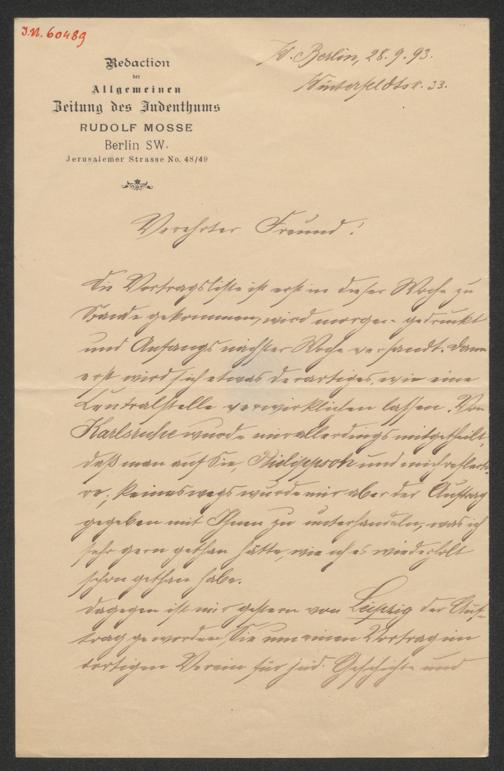 I.N. 60489
Redaction
der
Allgemeinen
Zeitung des Judenthums
RUDOLF MOSSE
Berlin SW.
Jerusalemer Strasse No. 48/49
W. Berlin, 28.9.93.
Winterfeldtstr. 33.
Verehrter Freund!
Die Vortragsliste ist erst in dieser Woche zu
Stande gekommen, wird morgen gedruckt
und Anfangs nächster Woche versandt. Dann
erst wird sich etwas derartiges, wie eine
Centralstelle verwirklichen lassen. Von
Karlsruhe wurde mir allerdings mitgetheilt,
daß man auf Sie, und mich reflecti-
re; keineswegs wurde mir aber der Auftrag
gegeben mit Ihnen zu unterhandeln, was ich
sehr gern gethan hätte, wie ich es wiederholt
schon gethan habe.
Dagegen ist mir gestern von Leipzig der Auf-
trag geworden, Sie um einen Vortrag im
dortigen Verein für jüd. Geschichte und